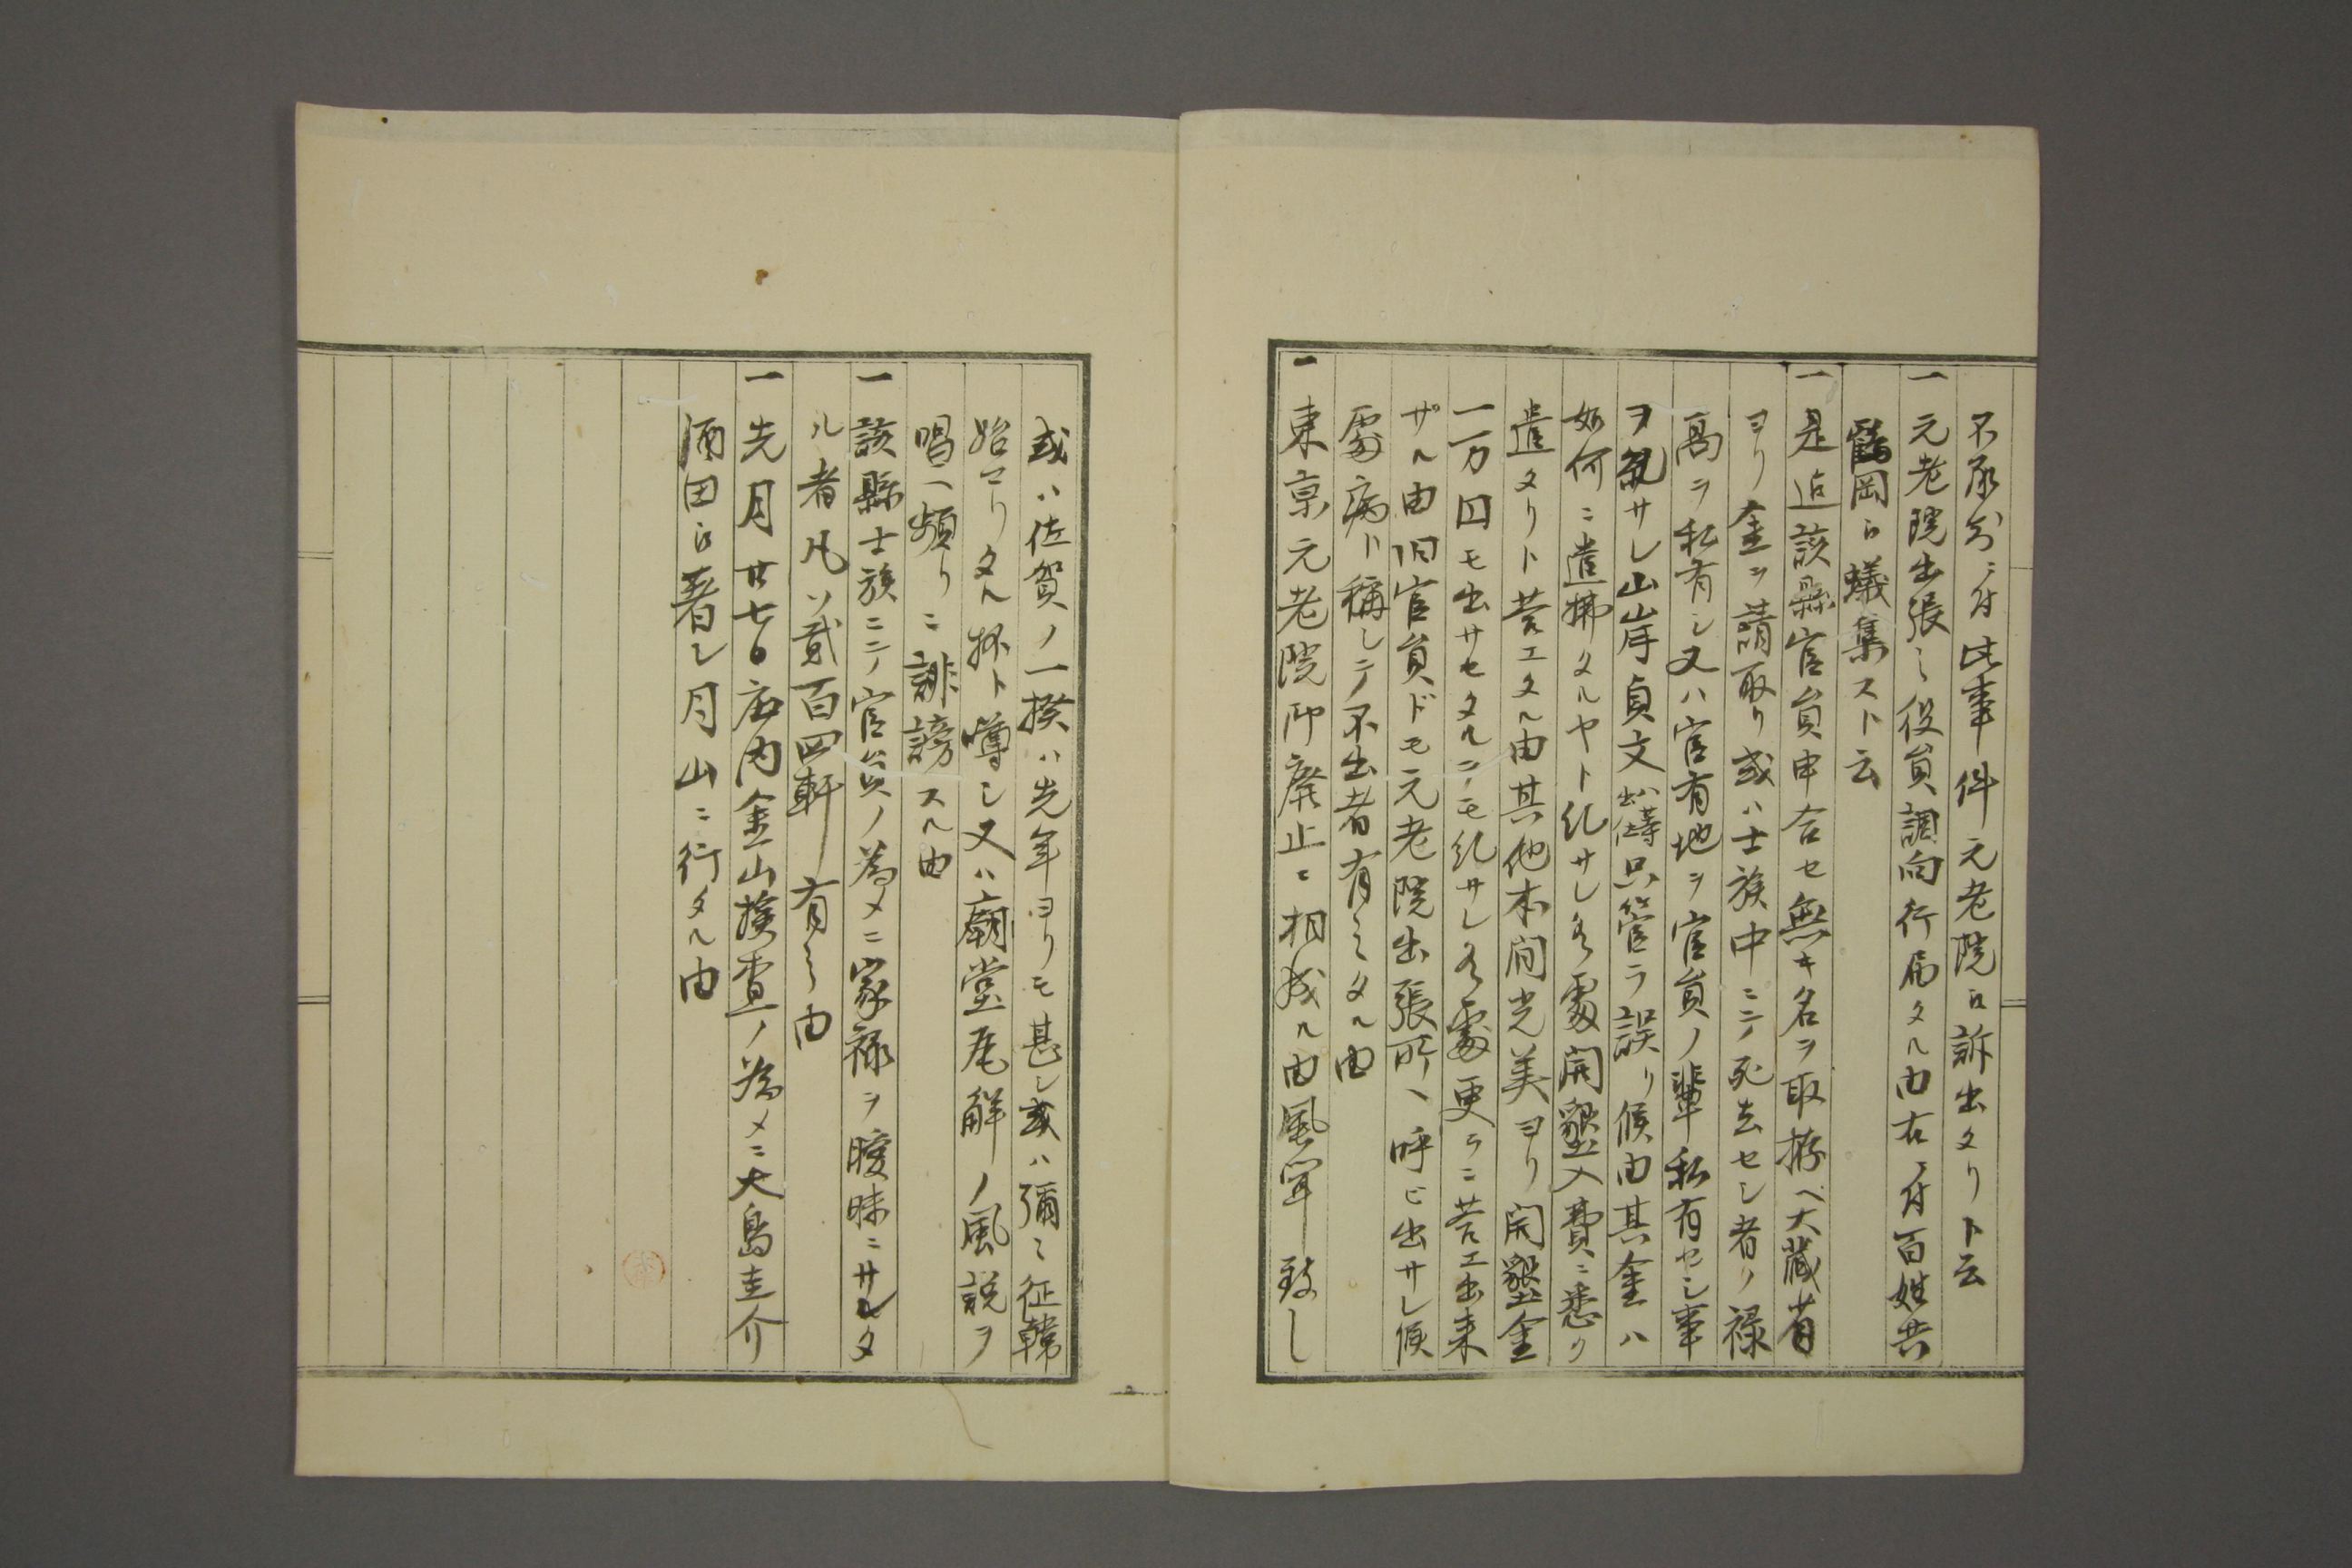 不承分ニ付此事件元老院ヘ訴出タリト云
一元老院出張之役員調向行届タル由右ニ付百姓共
鶴岡ヘ蟻集スト云
一是迠該縣官員申合セ無キ名ヲ取拵ヘ大蔵省
ヨリ金ヲ請取リ或ハ士族中ニテ死去セシ者ノ禄
高ヲ私有シ又ハ官有地ヲ官員ノ輩私有セシ事
ヲ糺サレ山岸貞文 只管ラ誤リ候由其金ハ
如何ニ遣拂タルヤト糺サレ候處開墾入費ニ悉ク
遣タリト答エタル由其他本間光美ヨリ開墾金
一万円モ出サセタルヲモ糺サレ候處更ラニ答エ出来
ザル由旧官員ドモ元老院出張所ヘ呼ビ出サレ候
處病ト稱シテ不出者有之タル由
一東京元老院御廃止ニ相成ル由風聞致し
或ハ佐賀ノ一揆ハ先年ヨリモ甚シ或ハ彌々征韓
始マリタル抔ト噂シ又ハ廟堂瓦解ノ風説ヲ
唱ヘ頻リニ誹謗スル由
一該縣士族ニテ官員ノ為メニ家禄ヲ曖昧ニサレタ
ル者凡ソ貳百四軒有之由
一先月廿七日庄内金山撿査ノ為メニ大島圭介
酒田ヘ着シ月山ニ行タル由